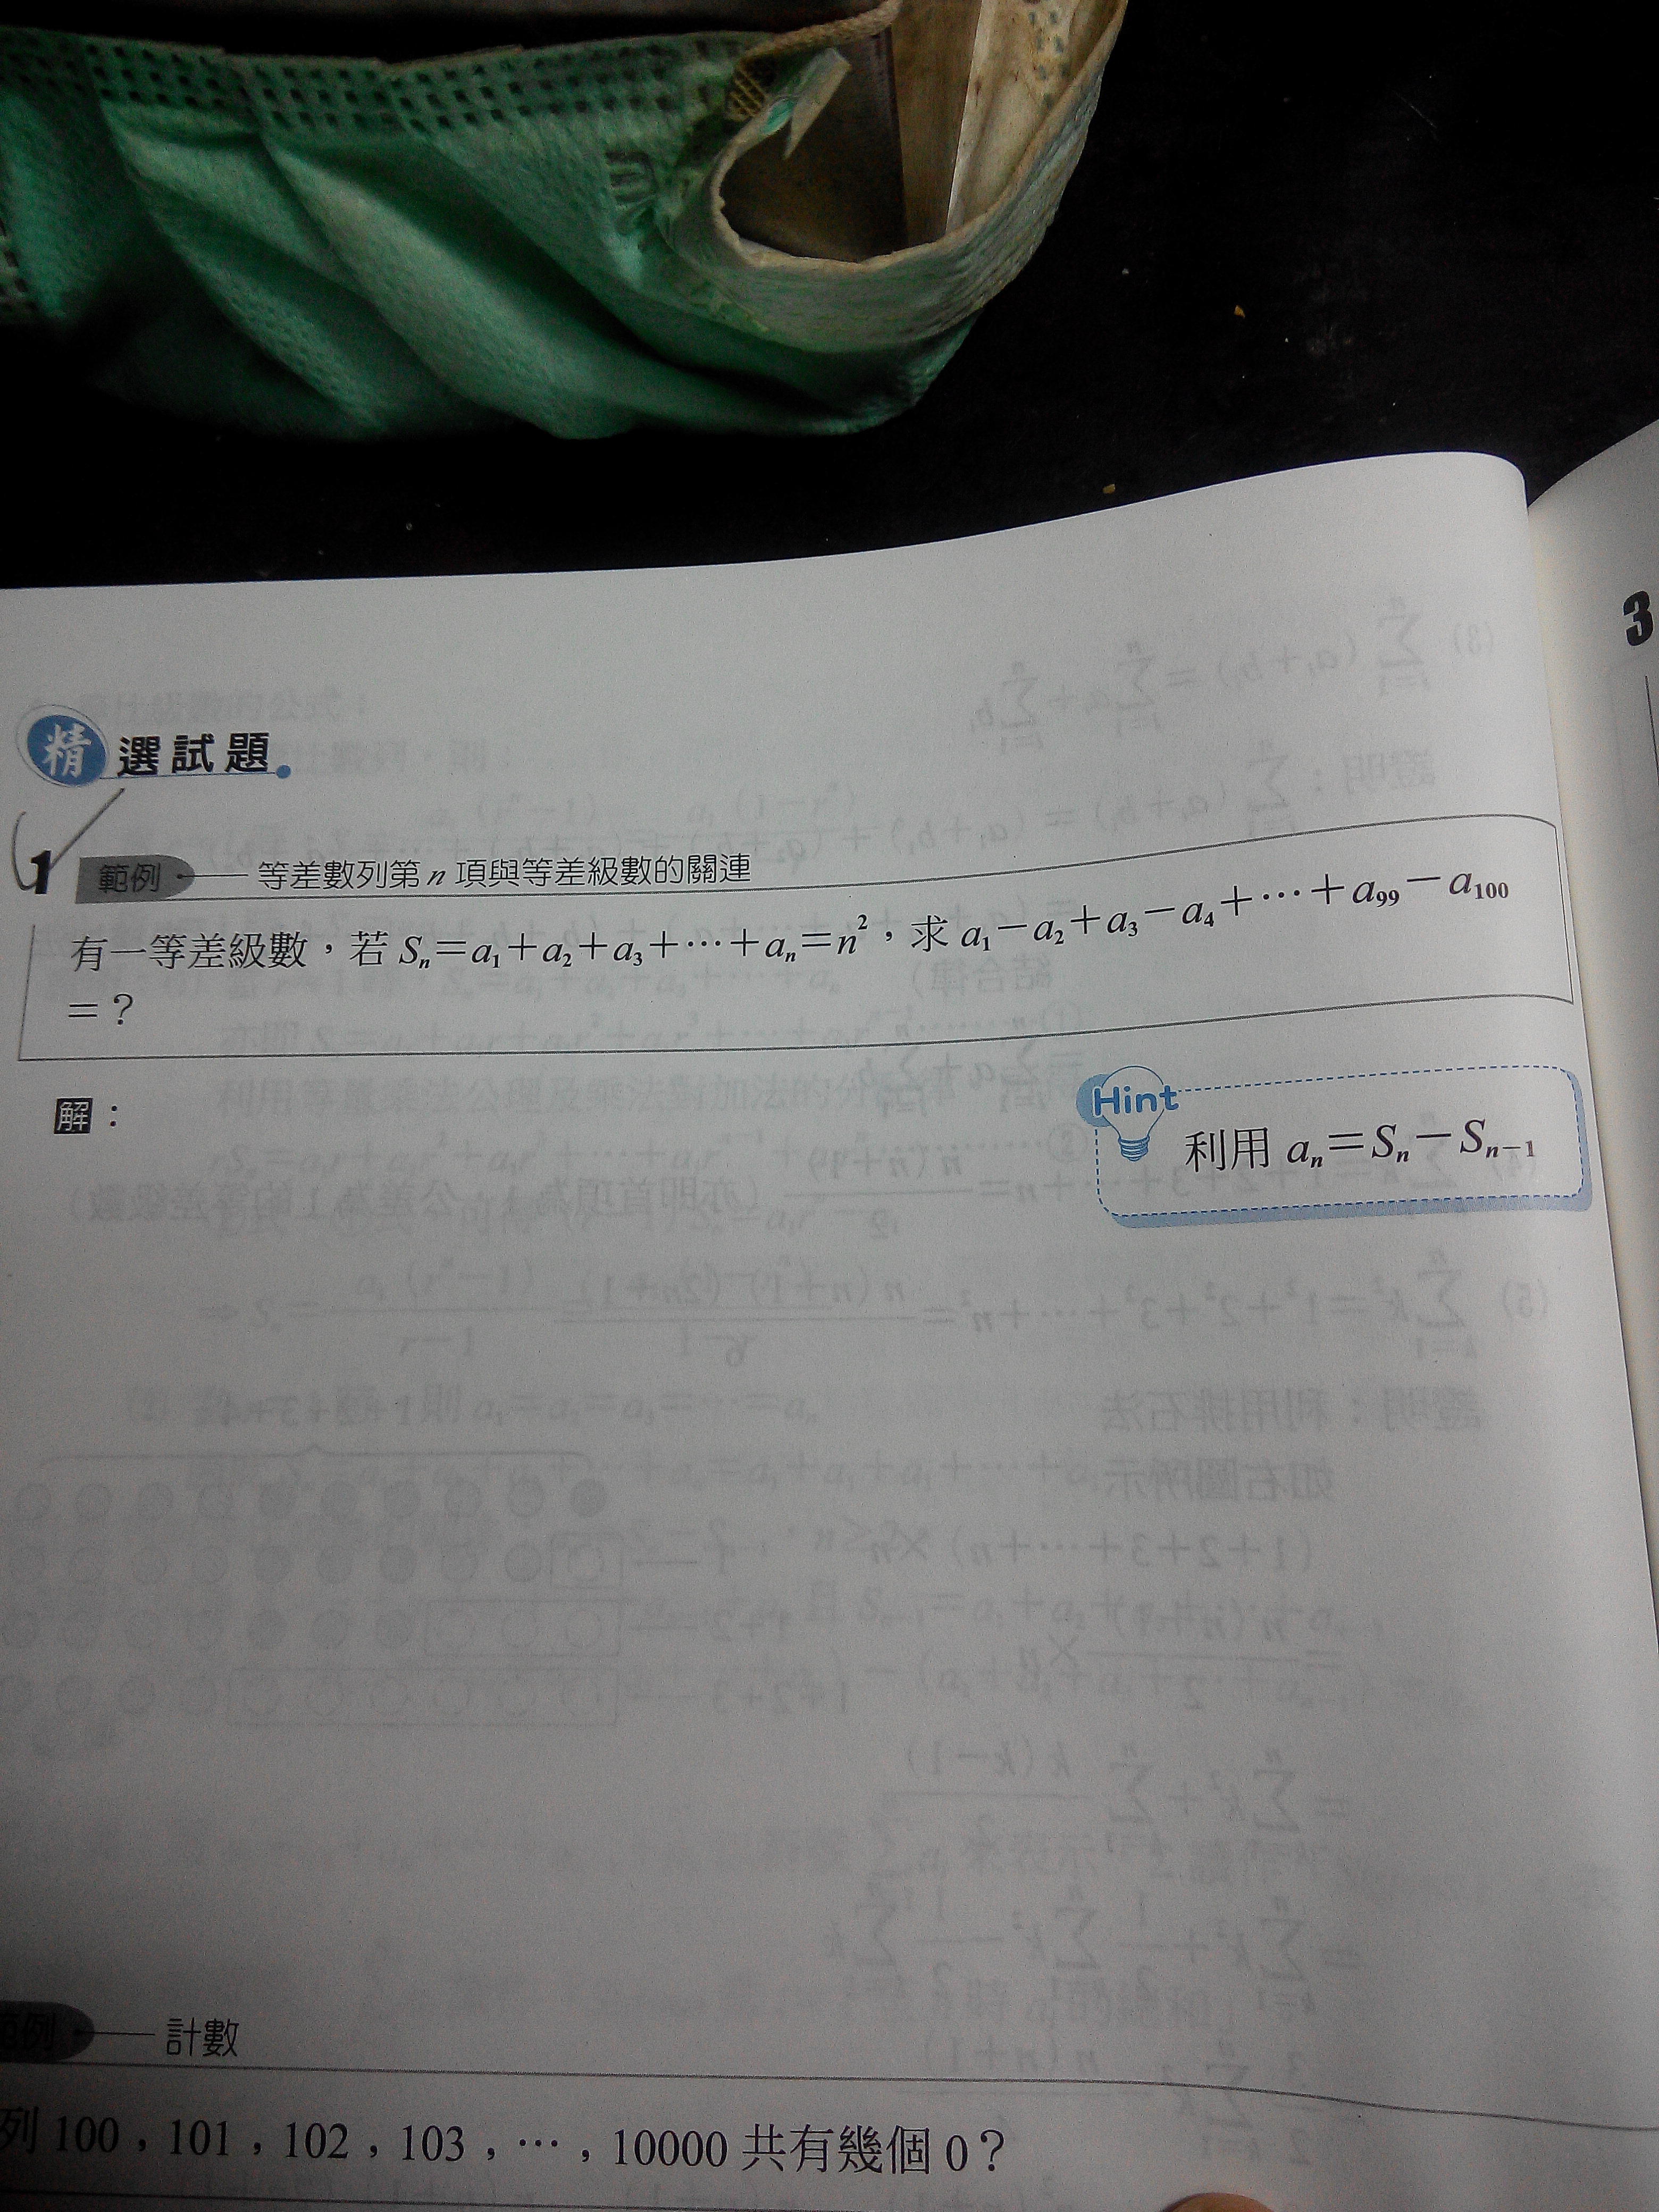 3
精選試題
1 範例 等差數列第 n 項與等差級數的關連
有一等差級數，若 Sₙ＝a₁＋a₂＋a₃＋⋯＋aₙ＝n²，求 a₁－a₂＋a₃－a₄＋⋯＋a₉₉－a₁₀₀
＝？
解：
Hint
利用 aₙ＝Sₙ－Sₙ₋₁
範例 計數
列 100，101，102，103，⋯，10000 共有幾個 0？